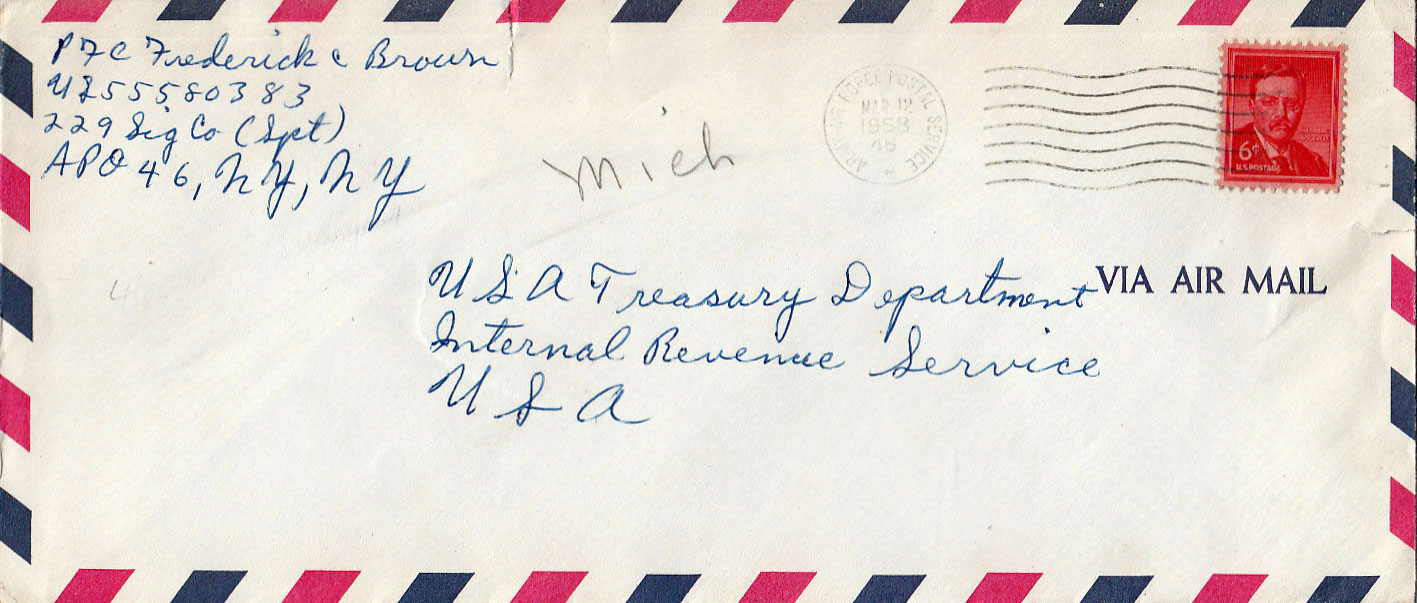 PFC Frederick C Brown
US55580383
229 Sig Co (Spt)
APO 46, NY, NY
Mich
ARMY-AIR FORCE POSTAL SERVICE
MAR 12
1958
46
6¢
U.S. POSTAGE
VIA AIR MAIL
USA Treasury Department
Internal Revenue Service
USA